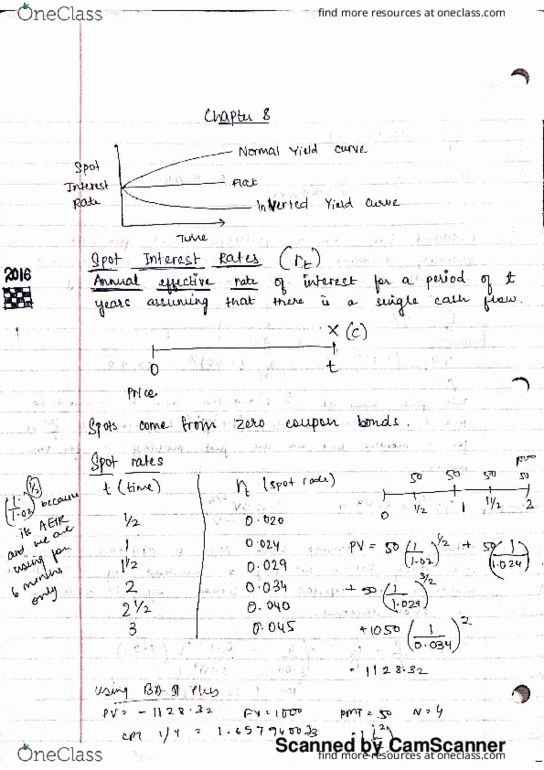 OneClass
find more resources at oneclass.com
Chapter 8
Normal Yield curve
Spot
Interest
Rate
Flat
Inverted Yield Curve
Time
Spot Interest Rates (rt)
2016
Annual effective rate of interest for a period of t
years assuming that there is a single cash flow.
X (C)
0 t
Price
Spots come from zero coupon bonds.
Spot rates
t (time) rt (spot rate)
1/2 0.020
1 0.024
1 1/2 0.029
2 0.034
2 1/2 0.040
3 0.045
(1/1.02)^1/2 because
its AEIR
and we are
using for
6 months
only
50 50 50 50
0 1/2 1 1 1/2 2
PV = 50 (1/1.02)^1/2 + 50 (1/1.024)
+ 50 (1/1.029)^3/2
+ 1050 (1/0.034)^2
= 1128.32
Using BA II Plus
PV = -1128.32 FV = 1000 PMT = 50 N = 4
CPT I/Y = 1.6579400
Scanned by CamScanner
OneClass
find more resources at oneclass.com